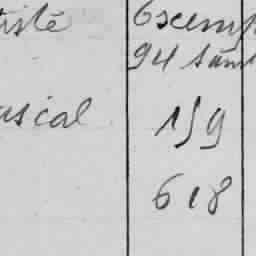 tistē 6 exemp
94 năm
usical 159
618